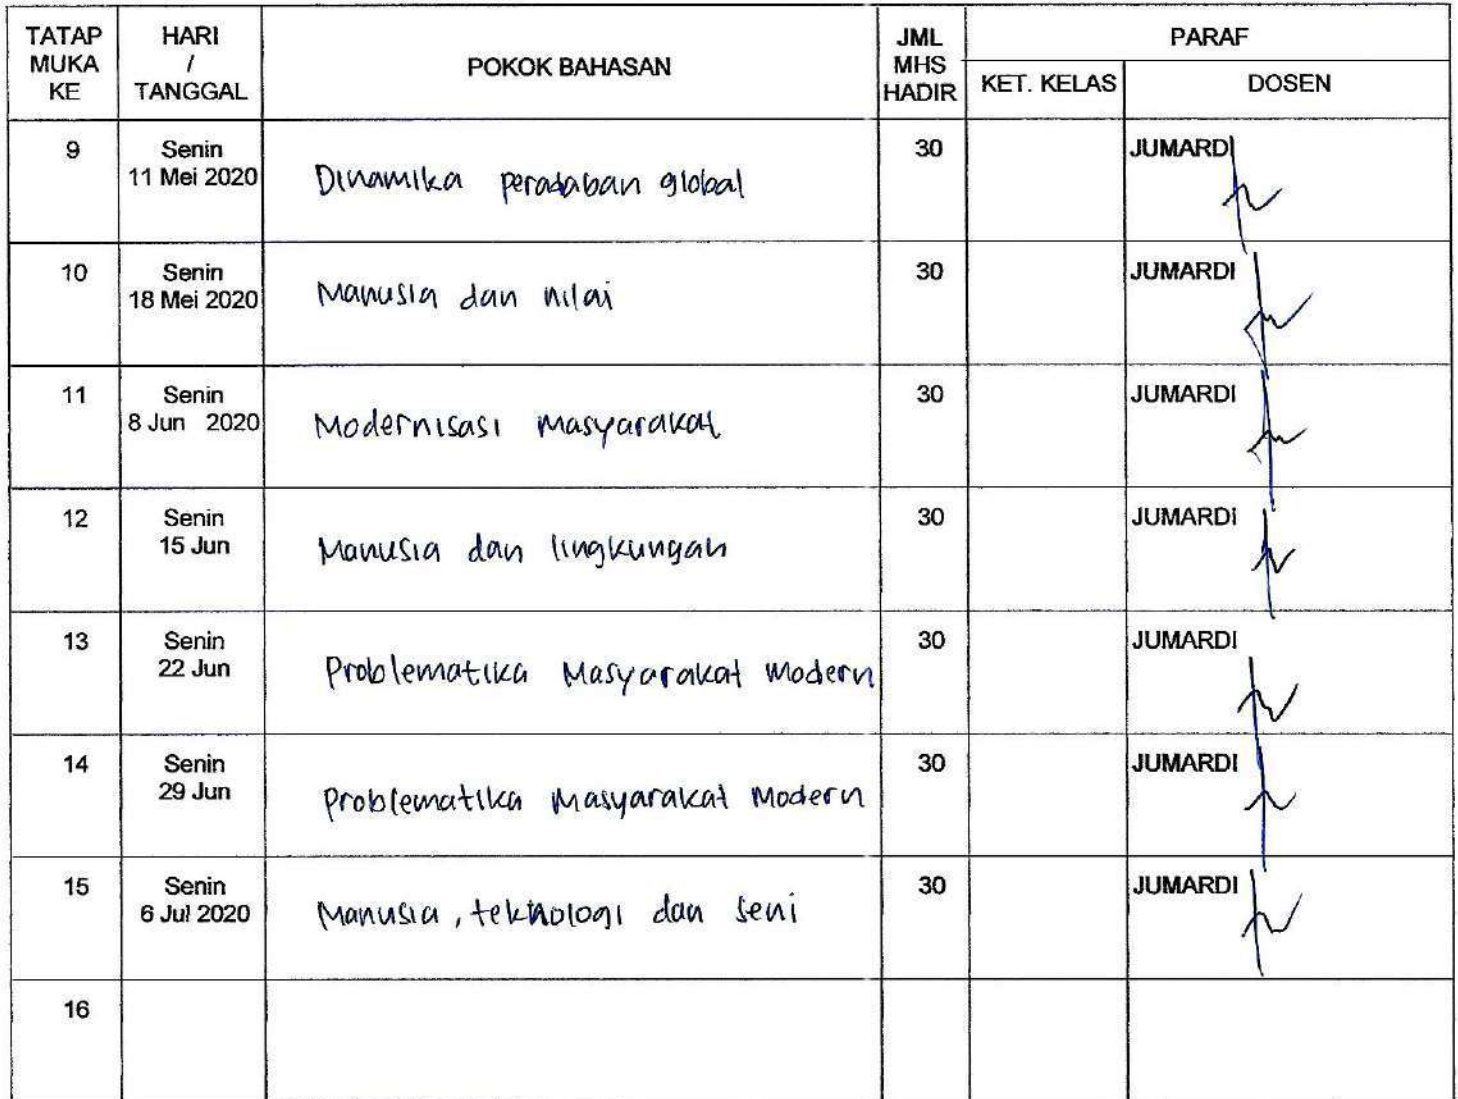 TATAP MUKA KE | HARI / TANGGAL | POKOK BAHASAN | JML MHS HADIR | PARAF
KET. KELAS | DOSEN
9 | Senin 11 Mei 2020 | Dinamika peradaban global | 30 | JUMARDI
10 | Senin 18 Mei 2020 | Manusia dan nilai | 30 | JUMARDI
11 | Senin 8 Jun 2020 | Modernisasi Masyarakat | 30 | JUMARDI
12 | Senin 15 Jun | Manusia dan lingkungan | 30 | JUMARDI
13 | Senin 22 Jun | Problematika Masyarakat Modern | 30 | JUMARDI
14 | Senin 29 Jun | Problematika Masyarakat Modern | 30 | JUMARDI
15 | Senin 6 Jul 2020 | Manusia, teknologi dan seni | 30 | JUMARDI
16